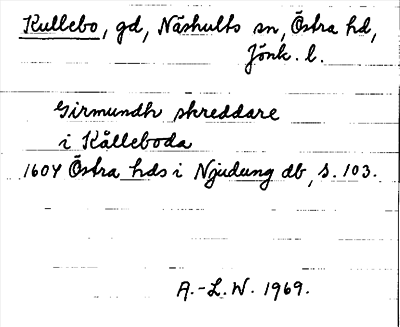 Kullebo, gd, Näshults sn, Östra hd,
Jönk. l.
Girmundh skreddare
i Kålleboda
1604 Östra hds i Njudung db, s. 103.
A.-L.W. 1969.